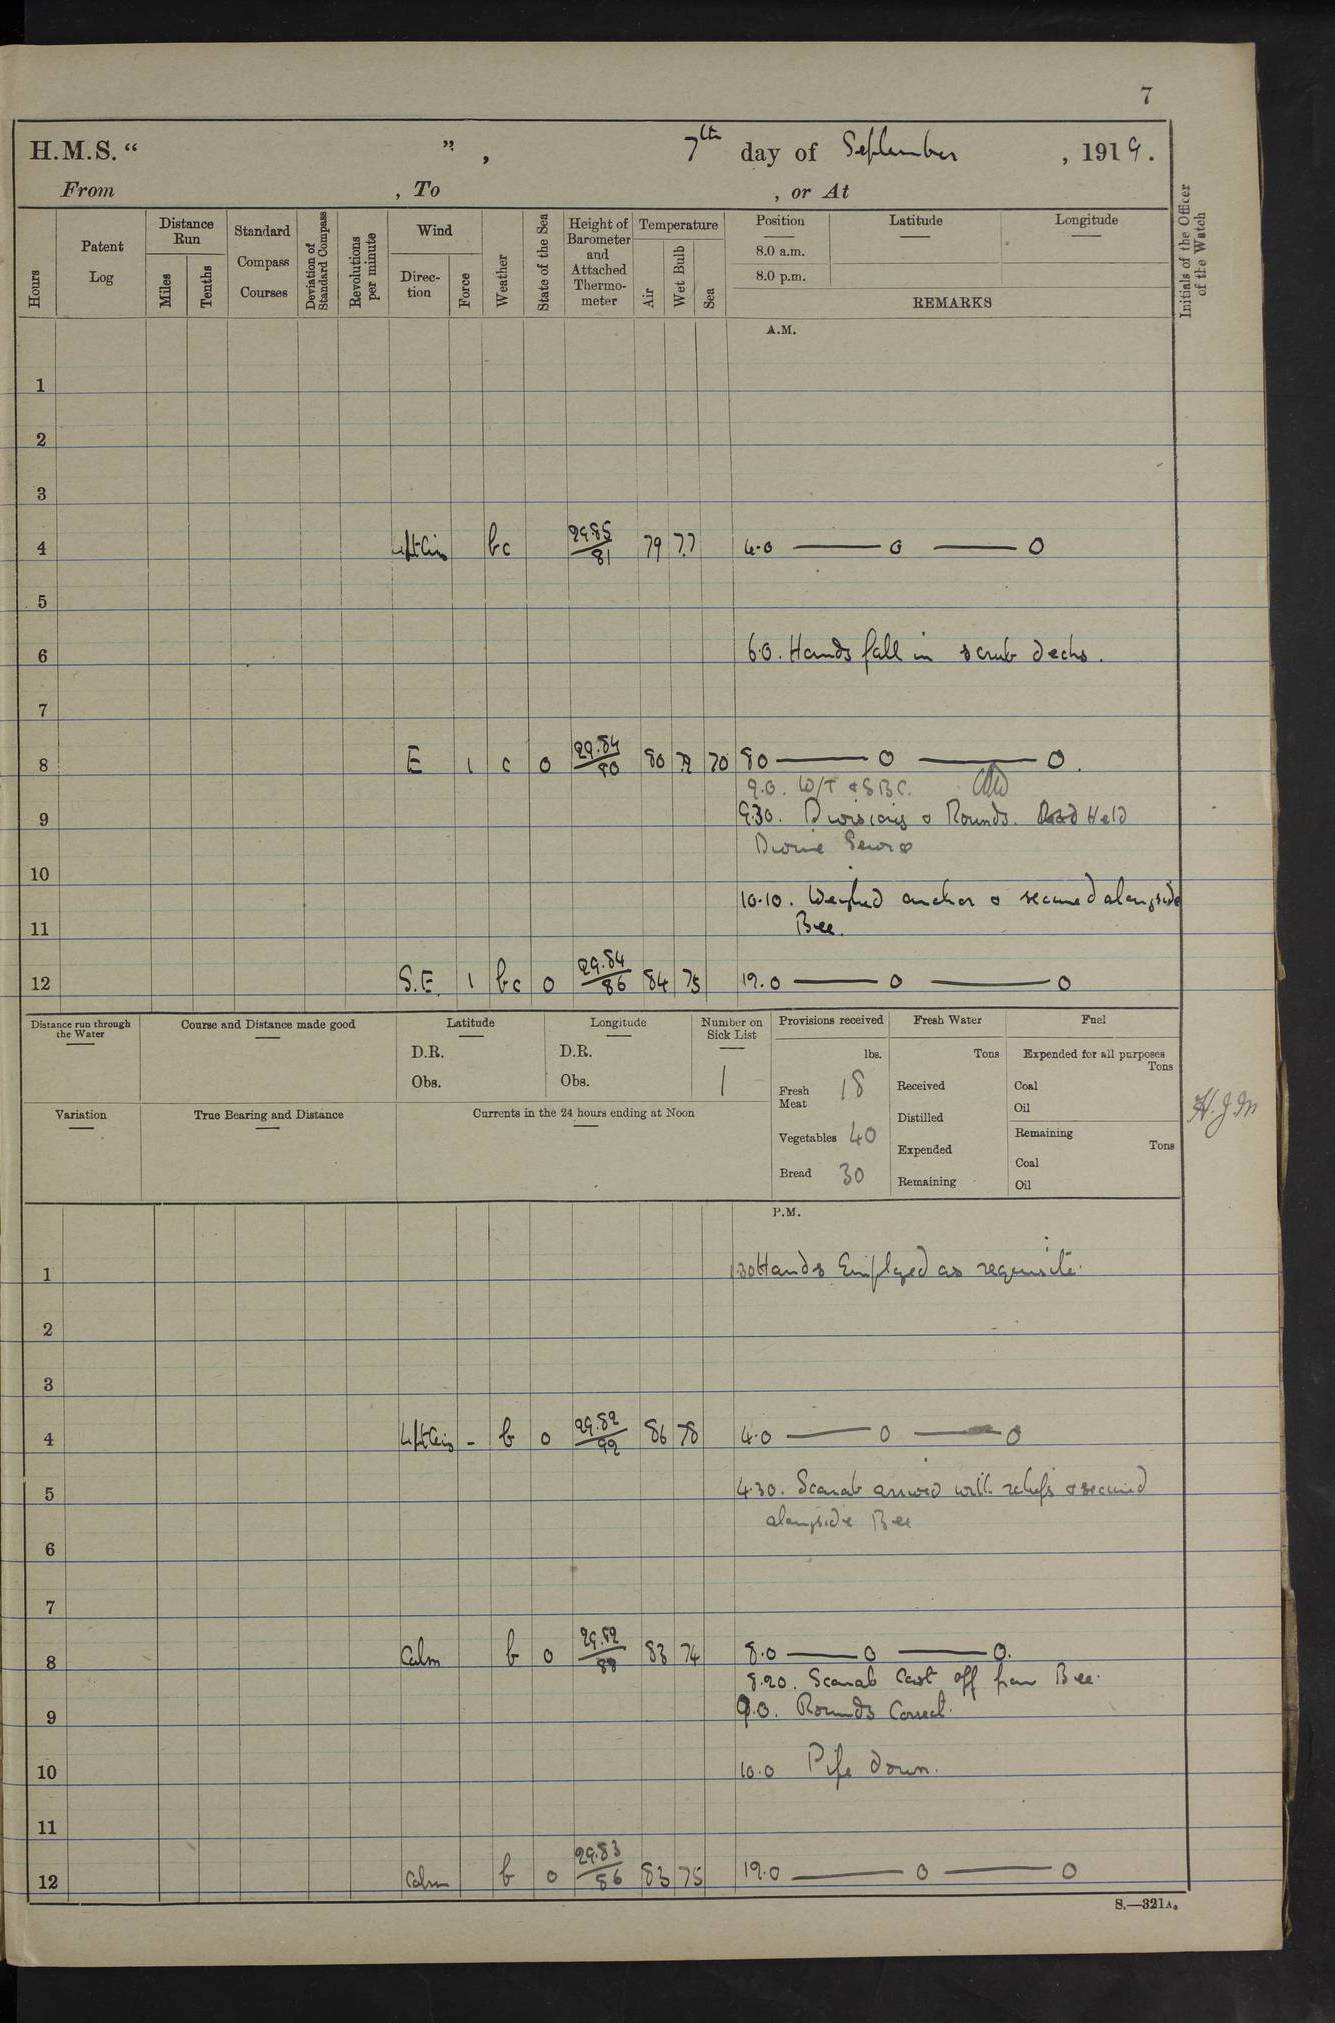 7
H.M.S. “ ” , 7th day of September , 1919.
From , To , or At
Hours
Patent Log
Distance Run
Miles
Tenths
Standard Compass Courses
Deviation of Standard Compass
Revolutions per minute
Wind
Direction
Force
Weather
State of the Sea
Height of Barometer and Attached Thermometer
Temperature
Air
Wet Bulb
Sea
Position
8.0 a.m.
8.0 p.m.
Latitude
Longitude
REMARKS
Initials of the Officer of the Watch
A.M.
1
2
3
4 bc 29.85/81 79 77 4.0 —— o —— o
5
6 6.0. Hands fall in scrub decks.
7
8 E 1 c o 29.84/80 80 70 8.0 —— o —— o.
9.0. W/T & SBC.
9 9.30. Divisions & Rounds. Held
Divine Service
10
10.10. Weighed anchor & secured alongside
11 Bee.
12 S.E. 1 bc o 29.84/86 84 75 12.0 —— o —— o
Distance run through the Water
Course and Distance made good
Latitude
D.R.
Obs.
Longitude
D.R.
Obs.
Number on Sick List
1
Provisions received
lbs.
Fresh Meat 18
Vegetables 40
Bread 30
Fresh Water
Tons
Received
Distilled
Expended
Remaining
Fuel
Expended for all purposes
Tons
Coal
Oil
Remaining
Tons
Coal
Oil
Variation
True Bearing and Distance
Currents in the 24 hours ending at Noon
H.J.M
P.M.
1 1.30 Hands Employed as requisite.
2
3
4 - b o 29.82/92 86 78 4.0 —— o —— o
5 4.30. Scarab arrived with reliefs & secured
alongside Bee
6
7
8 Calm b o 29.82/88 83 74 8.0 —— o —— o.
8.20. Scarab Cast off from Bee.
9 9.0. Rounds Correct.
10 10.0 Pipe down.
11
12 Calm b o 29.83/86 83 75 12.0 —— o —— o
S.—321A.